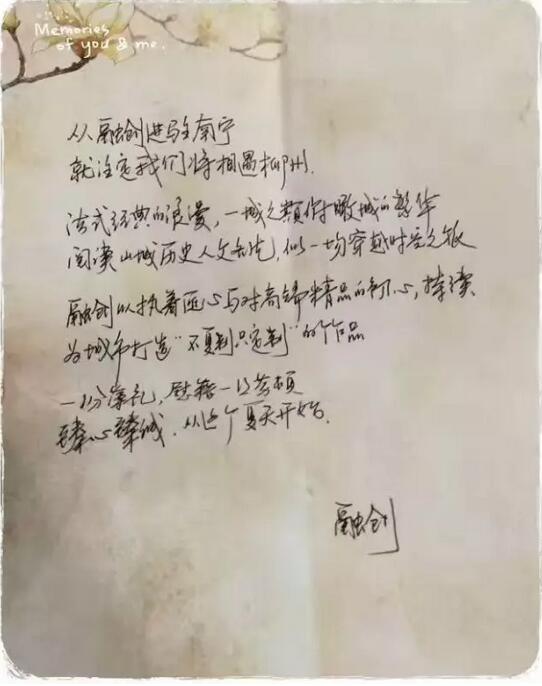 Memories
of you & me.
从融创进驻南宁
就注定我们将相遇柳州.
法式经典的浪漫，一城之巅俯瞰城的繁华
阅读山城历史人文，似一场穿越时空之旅
融创以执着匠心与对高端精品的初心，持续
为城市打造“不复制只定制”的作品
一份厚礼，慰藉一江
臻心臻城．从这个夏天开始.
融创